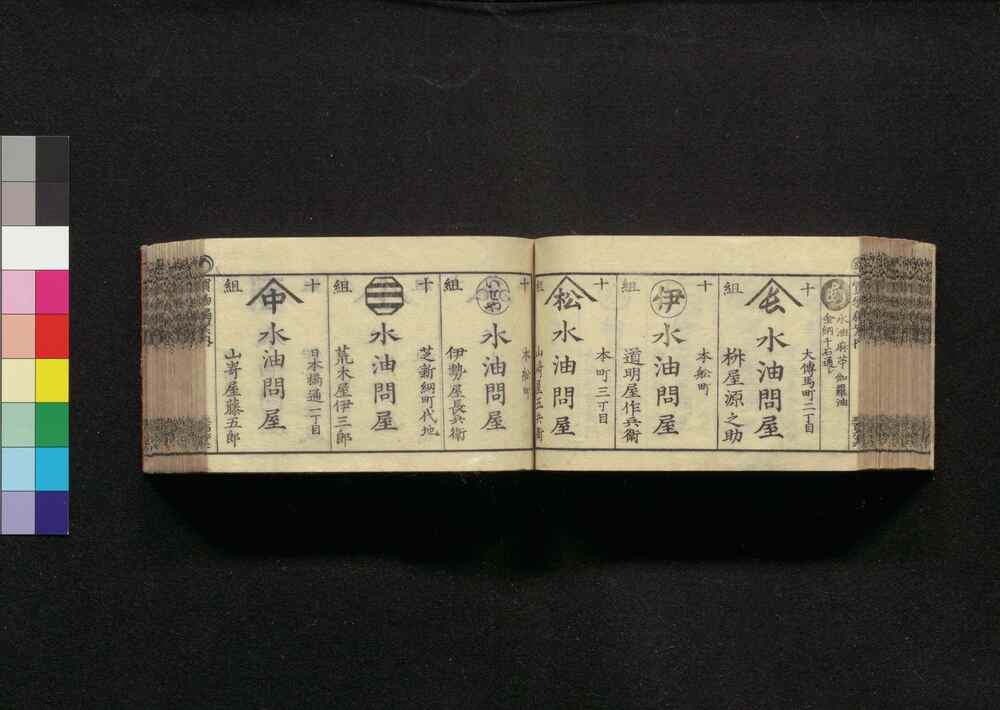 あ
水油麻苧 伽羅油
金納千石通し
十
組
長
大傳馬町二丁目
水油問屋
桝屋源之助
十
組
伊
本舩町
水油問屋
道明屋作兵衛
十
組
松
本町三丁目
水油問屋
山嵜屋五兵衛
十
組
いせや
本舩町
水油問屋
伊勢屋長兵衛
十
組
芝新網町代地
水油問屋
荒木屋伊三郎
十
組
中
日本橋通一丁目
水油問屋
山嵜屋藤五郎